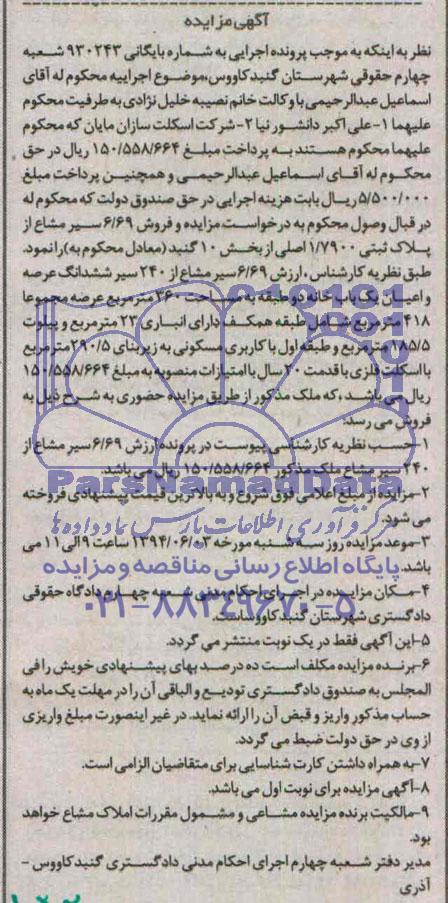 آگهی مزایده
نظر به اینکه به موجب پرونده اجرایی به شماره بایگانی ۹۳۰۲۴۳ شعبه
چهارم حقوقی شهرستان گنبدکاووس،موضوع اجراییه محکوم له آقای
اسماعیل عبدالرحیمی با وکالت خانم نصیبه خلیل نژادی به طرفیت محکوم
علیهما ۱-علی اکبر دانشور نیا ۲-شرکت اسکلت سازان مایان که محکوم
علیهما محکوم هستند به پرداخت مبلغ ۱۵۰/۵۵۸/۶۶۴ ریال در حق
محکوم له آقای اسماعیل عبدالرحیمی و همچنین پرداخت مبلغ
۵/۵۰۰/۰۰۰ ریال بابت هزینه اجرایی در حق صندوق دولت که محکوم له
در قبال وصول محکوم به درخواست مزایده و فروش ۶/۶۹ سیر مشاع از
پلاک ثبتی ۱/۷۹۰۰ اصلی از بخش ۱۰ گنبد (معادل محکوم به) را نمود.
طبق نظریه کارشناس، ارزش ۶/۶۹ سیر مشاع از ۲۴۰ سیر ششدانگ عرصه
و اعیان یک باب خانه دو طبقه به مساحت ۳۶۰ مترمربع عرصه مجموعا
۴۱۸ مترمربع شامل طبقه همکف دارای انباری ۲۳ مترمربع و پیلوت
۱۸۵/۵ مترمربع و طبقه اول با کاربری مسکونی به زیربنای ۲۹۰/۵ مترمربع
با اسکلت فلزی با قدمت ۲۰ سال با امتیازات منصوبه به مبلغ ۱۵۰/۵۵۸/۶۶۴
ریال می باشد ،که ملک مذکور از طریق مزایده حضوری به شرح ذیل به
فروش می رسد:
۱-حسب نظریه کارشناسی پیوست در پرونده ارزش ۶/۶۹ سیر مشاع از
۲۴۰ سیر مشاع ملک مذکور ۱۵۰/۵۵۸/۶۶۴ ریال می باشد.
۲-مزایده از مبلغ اعلامی فوق شروع و به بالاترین قیمت پیشنهادی فروخته
می شود.
۳-موعد مزایده روز سه شنبه مورخه ۱۳۹۴/۰۶/۰۳ ساعت ۹ الی ۱۱ می
باشد.
۴-مکان مزایده در اجرای احکام مدنی شعبه چهارم دادگاه حقوقی
دادگستری شهرستان گنبد کاووساست.
۵-این آگهی فقط در یک نوبت منتشر می گردد.
۶-برنده مزایده مکلف است ده درصد بهای پیشنهادی خویش را فی
المجلس به صندوق دادگستری تودیع و الباقی آن را در مهلت یک ماه به
حساب مذکور واریز و قبض آن را ارائه نماید. در غیر اینصورت مبلغ واریزی
از وی در حق دولت ضبط می گردد.
۷-به همراه داشتن کارت شناسایی برای متقاضیان الزامی است.
۸-آگهی مزایده برای نوبت اول می باشد.
۹-مالکیت برنده مزایده مشاعی و مشمول مقررات املاک مشاع خواهد
بود.
مدیر دفتر شعبه چهارم اجرای احکام مدنی دادگستری گنبدکاووس -
آذری
ParsNamadData
گردآوری اطلاعات پارس نماد داده ها
پایگاه اطلاع رسانی مناقصه و مزایده
۰۲۱-۸۸۳۴۹۶۷۰-۵